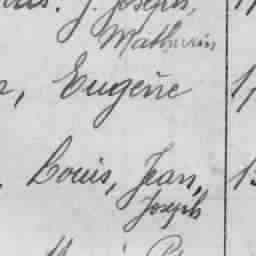 J. Joseph,
Mathurin
, Eugène
Louis, Jean,
Joseph